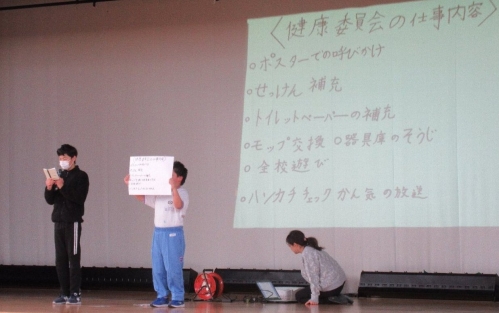 〈健康委員会の仕事内容〉
○ポスターでの呼びかけ
○せっけん 補充
○トイレットペーパーの補充
○モップ交換 ○器具庫のそうじ
○全校遊び
○ハンカチチェック かん気の放送